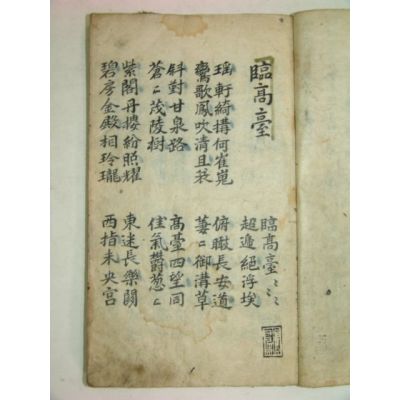 臨高臺
臨高臺〻〻
超遞絕浮埃
瑤軒綺搆何崔嵬
鸞歌鳳吹清且哀
俯瞰長安道
萋〻御溝草
斜對甘泉路
蒼〻茂陵樹
高臺四望同
佳氣鬱葱〻
紫閣丹樓紛照耀
碧房金殿相玲瓏
東迷長樂闕
西指未央宮